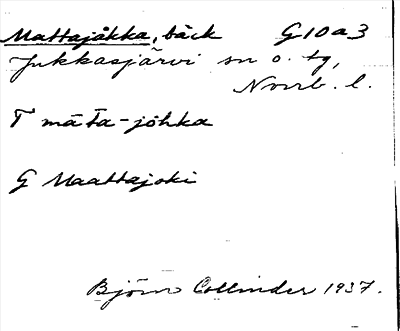 Mattajåkka, bäck G10a3
Jukkasjärvi sn o. tg,
Norrb. l.
T māTa-johka
G Maattajoki
Björn Collinder 1937.